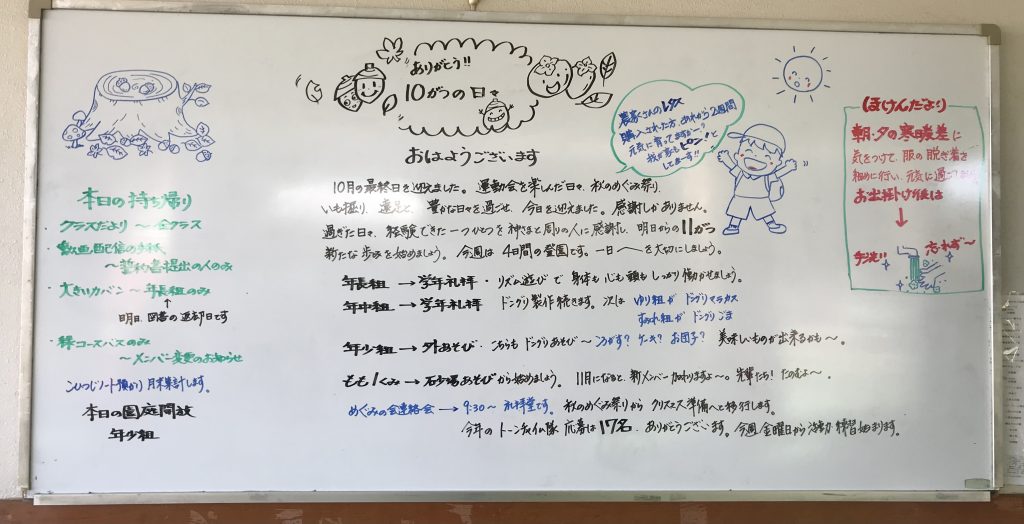 ありがとう!!
10がつの日々
おはようございます
農家さんのレタス
購入された方、あれから2週間
元気に育ってますか〜?
我が家もピン!と
してます!!
10月の最終日を迎えました。運動会を楽しんだ日々、秋のめぐみ祭り、
いも掘り、遠足と、豊かな日々を過ごせ、今日を迎えました。感謝しかありません。
過ぎた日々、経験できた一つひとつを神さまと周りの人に感謝し、明日からの11がつ
新たな歩みを始めましょう。今週は4日間の登園です。一日一日を大切にしましょう。
年長組→学年礼拝・リズム遊びで身体も心も頭もしっかり働かせましょう。
年中組→学年礼拝 ドングリ製作続きます。次は ゆり組がドングリマラカス
すみれ組がドングリごま
年少組→外あそび・こちらもドングリあそび〜 ケーキ?お団子?美味しいものが出来るかも〜。
もも1くみ→石砂場あそびから始めましょう。11月になると、新メンバー加わりますよ〜。先輩たち!たのむよ〜。
めぐみの会連絡会→9:30〜礼拝堂です。秋のめぐみ祭りからクリスマス準備へと移行します。
今年のトーンチャイム隊応募は17名、ありがとうございます。今週金曜日から活動・練習始まります。
本日の持ち帰り
・クラスだより〜全クラス
・動画配信の手紙
〜誓約書提出の人のみ
・大きいカバン〜年長組のみ
↑
明日、図書の返却日です
・緑コースバスのみ
〜メンバー変更のお知らせ
こひつじノート預かり月末集計します。
本日の園庭開放
年少組
ほけんだより
朝・夕の寒暖差に
気をつけて、服の脱ぎ着を
こまめに行い、元気に過ごしましょう
お出掛け後は
↓
手洗い
忘れず〜